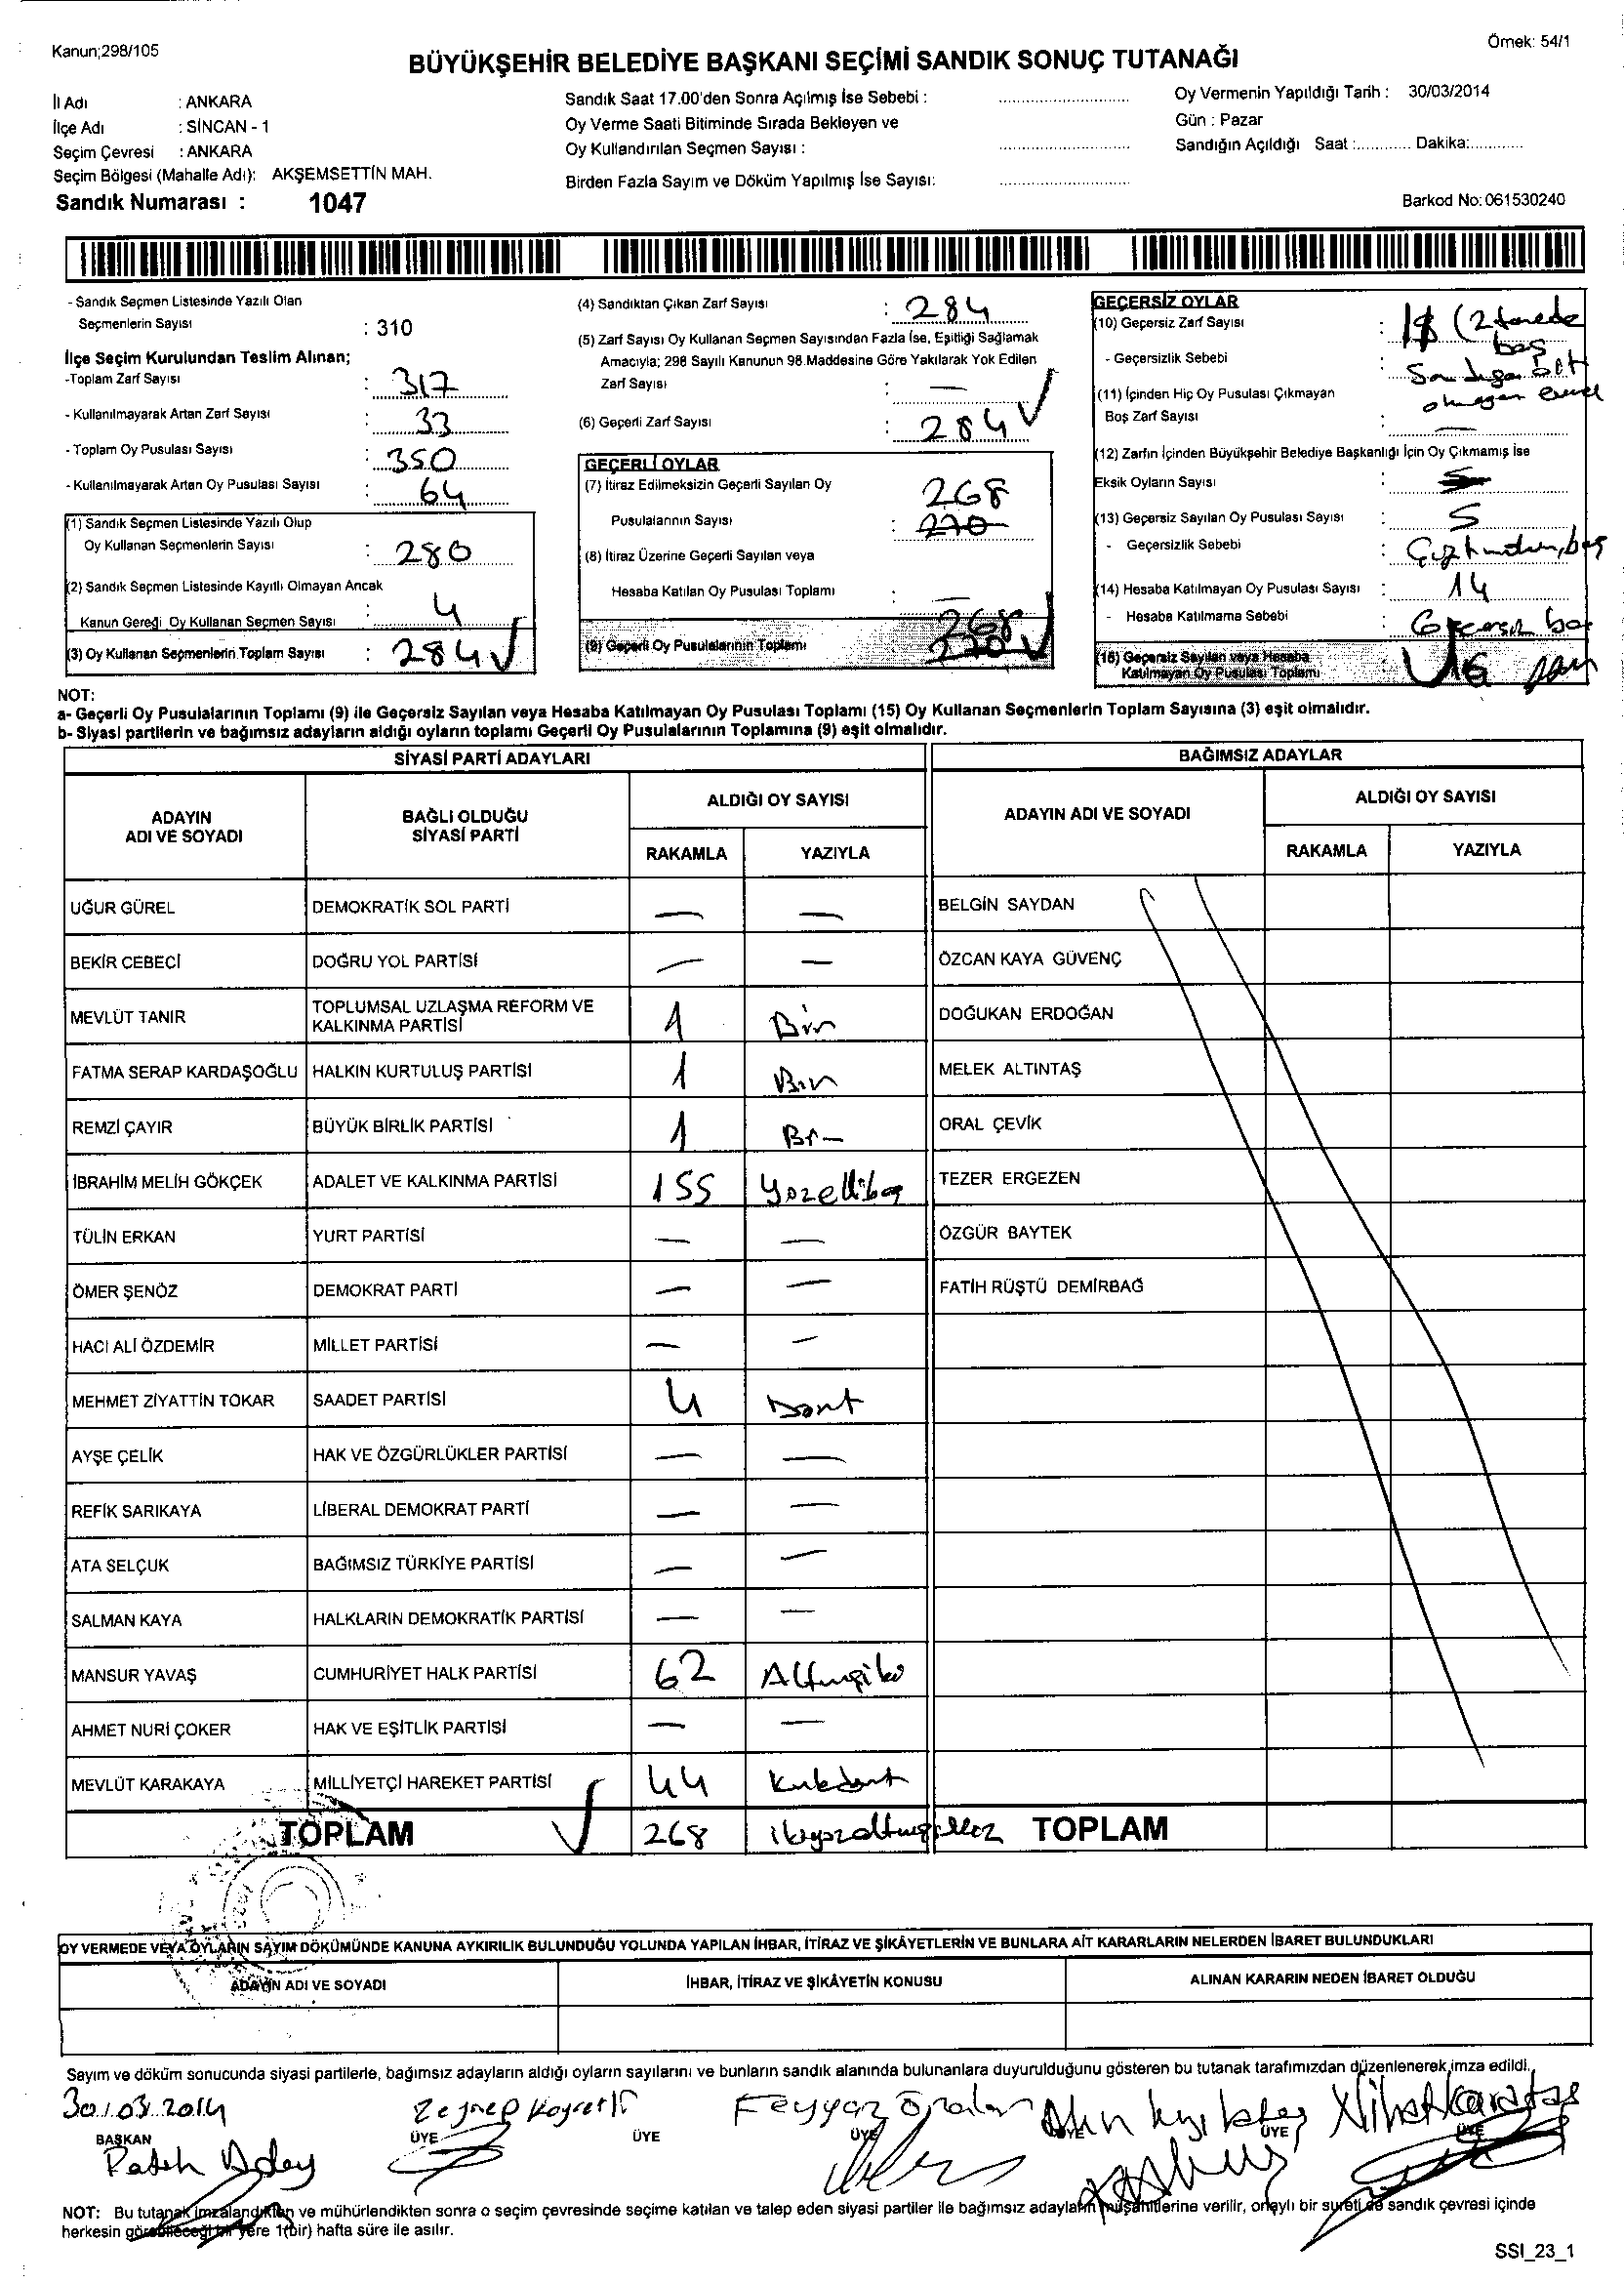 Kanun;298/105
Örnek: 54/1
BÜYÜKŞEHİR BELEDİYE BAŞKANI SEÇİMİ SANDIK SONUÇ TUTANAĞI
İl Adı : ANKARA
İlçe Adı : SİNCAN - 1
Seçim Çevresi : ANKARA
Seçim Bölgesi (Mahalle Adı): AKŞEMSETTİN MAH.
Sandık Numarası : 1047
Sandık Saat 17.00'den Sonra Açılmış İse Sebebi :
Oy Verme Saati Bitiminde Sırada Bekleyen ve
Oy Kullandırılan Seçmen Sayısı :
Birden Fazla Sayım ve Döküm Yapılmış İse Sayısı:
Oy Vermenin Yapıldığı Tarih : 30/03/2014
Gün : Pazar
Sandığın Açıldığı Saat :............ Dakika:............
Barkod No: 061530240
- Sandık Seçmen Listesinde Yazılı Olan
Seçmenlerin Sayısı : 310
İlçe Seçim Kurulundan Teslim Alınan;
-Toplam Zarf Sayısı : 317
- Kullanılmayarak Artan Zarf Sayısı : 33
- Toplam Oy Pusulası Sayısı : 350
- Kullanılmayarak Artan Oy Pusulası Sayısı : 64
(1) Sandık Seçmen Listesinde Yazılı Olup
Oy Kullanan Seçmenlerin Sayısı : 280
(2) Sandık Seçmen Listesinde Kayıtlı Olmayan Ancak
Kanun Gereği Oy Kullanan Seçmen Sayısı : 4
(3) Oy Kullanan Seçmenlerin Toplam Sayısı : 284
(4) Sandıktan Çıkan Zarf Sayısı : 284
(5) Zarf Sayısı Oy Kullanan Seçmen Sayısından Fazla İse, Eşitliği Sağlamak
Amacıyla; 298 Sayılı Kanunun 98.Maddesine Göre Yakılarak Yok Edilen
Zarf Sayısı : —
(6) Geçerli Zarf Sayısı : 284
GEÇERLİ OYLAR
(7) İtiraz Edilmeksizin Geçerli Sayılan Oy 268
Pusulalarının Sayısı : 270
(8) İtiraz Üzerine Geçerli Sayılan veya
Hesaba Katılan Oy Pusulası Toplamı : —
(9) Geçerli Oy Pusulalarının Toplamı 268
270
GEÇERSİZ OYLAR
(10) Geçersiz Zarf Sayısı : (2
boş
- Geçersizlik Sebebi :
(11) İçinden Hiç Oy Pusulası Çıkmayan
Boş Zarf Sayısı —
(12) Zarfın İçinden Büyükşehir Belediye Başkanlığı İçin Oy Çıkmamış İse
Eksik Oyların Sayısı :
(13) Geçersiz Sayılan Oy Pusulası Sayısı : 5
- Geçersizlik Sebebi : boş
(14) Hesaba Katılmayan Oy Pusulası Sayısı : 14
- Hesaba Katılmama Sebebi : Geçersiz boş
(15) Geçersiz Sayılan veya Hesaba
Katılmayan Oy Pusulası Toplamı 16
NOT:
a- Geçerli Oy Pusulalarının Toplamı (9) ile Geçersiz Sayılan veya Hesaba Katılmayan Oy Pusulası Toplamı (15) Oy Kullanan Seçmenlerin Toplam Sayısına (3) eşit olmalıdır.
b- Siyasi partilerin ve bağımsız adayların aldığı oyların toplamı Geçerli Oy Pusulalarının Toplamına (9) eşit olmalıdır.
SİYASİ PARTİ ADAYLARI
BAĞIMSIZ ADAYLAR
ADAYIN
ADI VE SOYADI
BAĞLI OLDUĞU
SİYASİ PARTİ
ALDIĞI OY SAYISI
RAKAMLA YAZIYLA
ADAYIN ADI VE SOYADI
ALDIĞI OY SAYISI
RAKAMLA YAZIYLA
UĞUR GÜREL DEMOKRATİK SOL PARTİ — — BELGİN SAYDAN
BEKİR CEBECİ DOĞRU YOL PARTİSİ — — ÖZCAN KAYA GÜVENÇ
MEVLÜT TANIR TOPLUMSAL UZLAŞMA REFORM VE
KALKINMA PARTİSİ 1 Bir DOĞUKAN ERDOĞAN
FATMA SERAP KARDAŞOĞLU HALKIN KURTULUŞ PARTİSİ 1 Bir MELEK ALTINTAŞ
REMZİ ÇAYIR BÜYÜK BİRLİK PARTİSİ 1 Bir ORAL ÇEVİK
İBRAHİM MELİH GÖKÇEK ADALET VE KALKINMA PARTİSİ 155 Yüzellibeş TEZER ERGEZEN
TÜLİN ERKAN YURT PARTİSİ — — ÖZGÜR BAYTEK
ÖMER ŞENÖZ DEMOKRAT PARTİ — — FATİH RÜŞTÜ DEMİRBAĞ
HACI ALİ ÖZDEMİR MİLLET PARTİSİ — —
MEHMET ZİYATTİN TOKAR SAADET PARTİSİ 4 Dört
AYŞE ÇELİK HAK VE ÖZGÜRLÜKLER PARTİSİ — —
REFİK SARIKAYA LİBERAL DEMOKRAT PARTİ — —
ATA SELÇUK BAĞIMSIZ TÜRKİYE PARTİSİ — —
SALMAN KAYA HALKLARIN DEMOKRATİK PARTİSİ — —
MANSUR YAVAŞ CUMHURİYET HALK PARTİSİ 62 Altmışiki
AHMET NURİ ÇOKER HAK VE EŞİTLİK PARTİSİ — —
MEVLÜT KARAKAYA MİLLİYETÇİ HAREKET PARTİSİ 44 Kırkdört
TOPLAM 268 ikiyüzaltmışsekiz TOPLAM
OY VERMEDE VEYA OYLARIN SAYIM DÖKÜMÜNDE KANUNA AYKIRILIK BULUNDUĞU YOLUNDA YAPILAN İHBAR, İTİRAZ VE ŞİKÂYETLERİN VE BUNLARA AİT KARARLARIN NELERDEN İBARET BULUNDUKLARI
ADAYIN ADI VE SOYADI İHBAR, İTİRAZ VE ŞİKÂYETİN KONUSU ALINAN KARARIN NEDEN İBARET OLDUĞU
Sayım ve döküm sonucunda siyasi partilerle, bağımsız adayların aldığı oyların sayılarını ve bunların sandık alanında bulunanlara duyurulduğunu gösteren bu tutanak tarafımızdan düzenlenerek imza edildi.
30/03/2014 Zeynep Feyyaz Nihat Karataş
BAŞKAN ÜYE ÜYE ÜYE ÜYE ÜYE ÜYE
NOT: Bu tutanak imzalandıktan ve mühürlendikten sonra o seçim çevresinde seçime katılan ve talep eden siyasi partiler ile bağımsız adayların müşahitlerine verilir, onaylı bir sureti de sandık çevresi içinde
herkesin görebileceği bir yere 1(bir) hafta süre ile asılır.
SSI_23_1